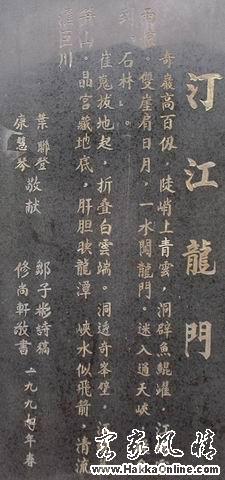 汀江龍門
奇巖高百仞，陡峭上青雲，洞辟魚鯤躍，江
雙崖肩日月，一水闖龍門。迷入道天峽
列石林。
崔嵬拔地起，折疊白雲端。洞造奇峯壁，
山，晶宮藏地底，肝胆映龍潭，峽水似飛箭，清流
巨川
葉聯登 敬献
康慧琴
鄒子彬詩稿
修尚軒敬書
一九九四年春
客家風情
www.HakkaOnline.com